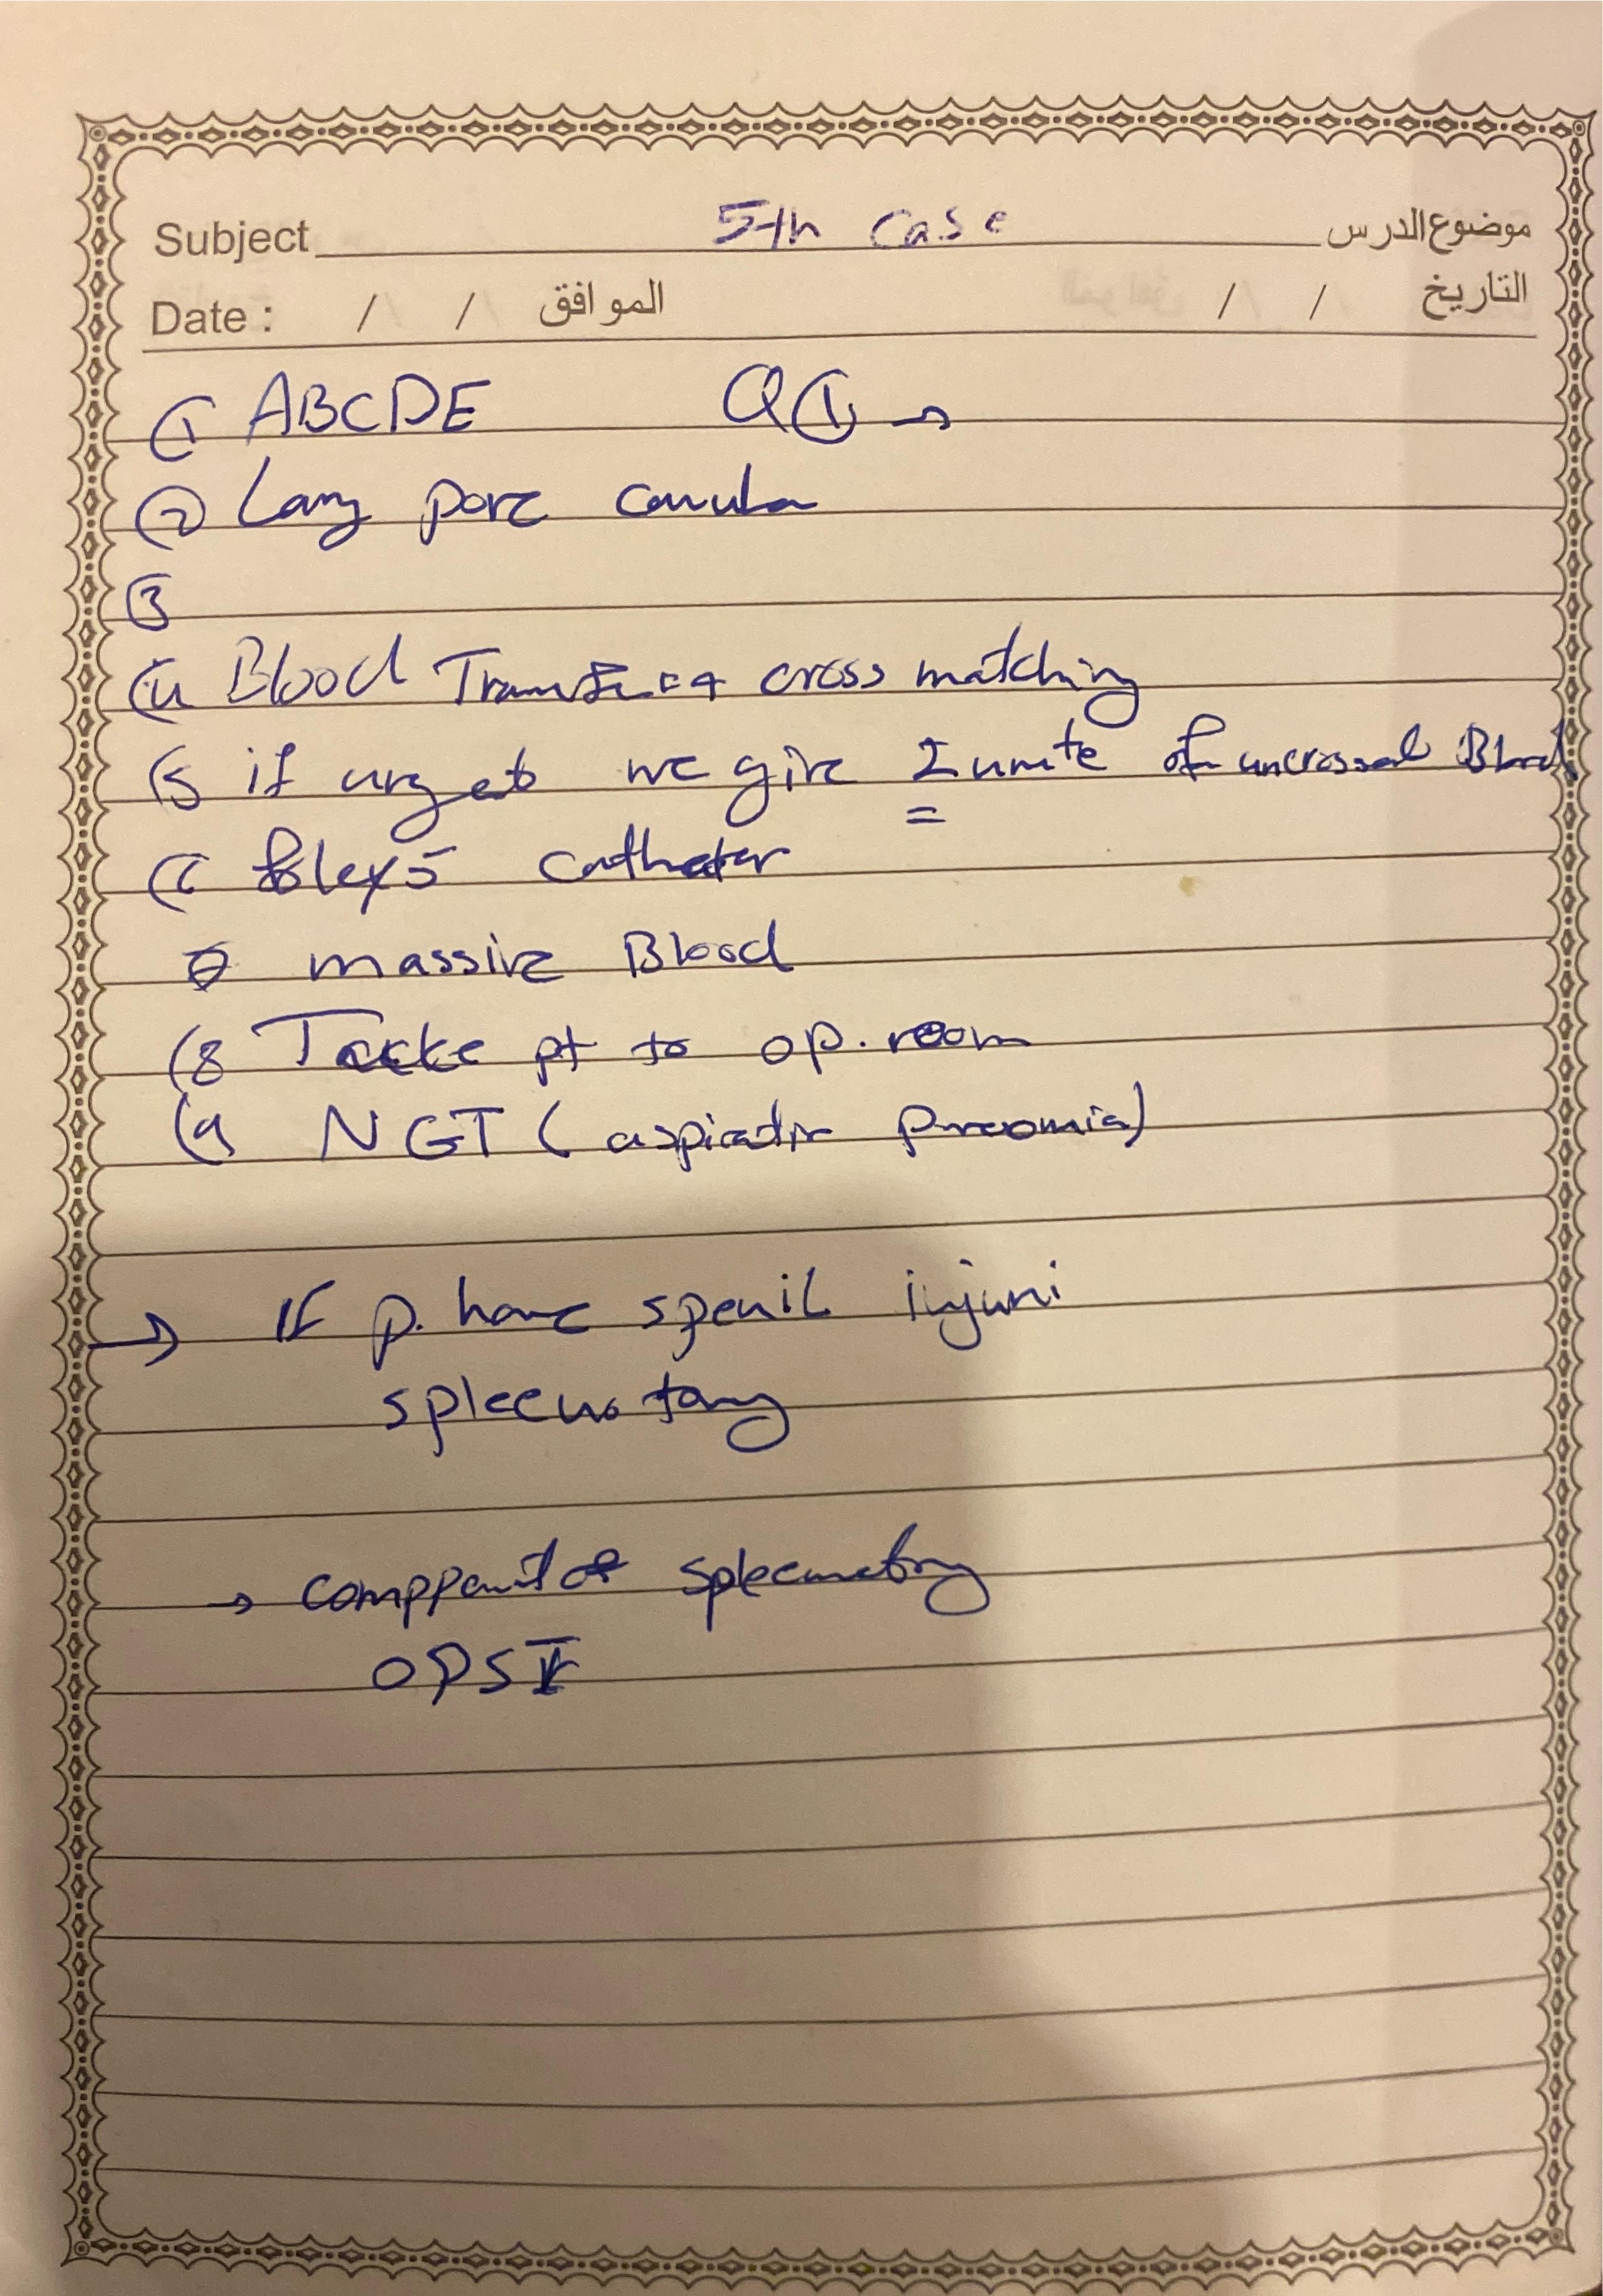 Subject 5th case موضوع الدرس
Date : / / الموافق / / التاريخ
① ABCDE Q① →
② Larg pore canula
③
(4 Blood cross matching
(5 if urget we give 2 unite of uncrossed Blood
(6 foley5 catheter
7 massive Blood
(8 Tacke pt to op. room
(9 NGT ( aspiratin pneomia)
→ If p. have spenil injuri
spleenotomy
→ of spleenectomy
OPSI